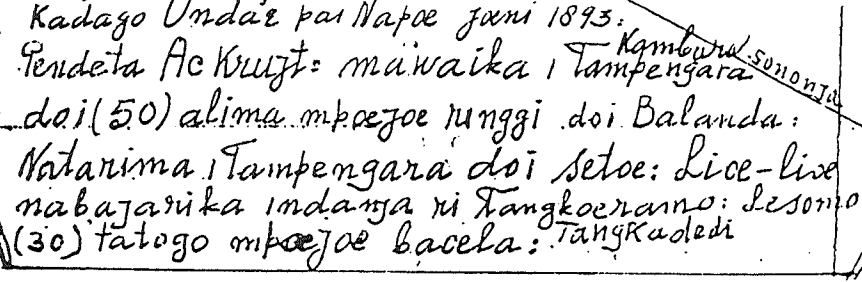 Kadago Undaé pai Napoe joeni 1893:
Pendeta Ac Kruijt: mawaika i Tampengara
Kamburu sononja
doi (50) alima mpoejoe runggi doi Balanda:
Natarima i Tampengara doi setoe: Lice-live
nabajarika indanja ri Tangkoeramo: Lesomo
(30) tatogo mpoejoe bacela: Tangkadedi